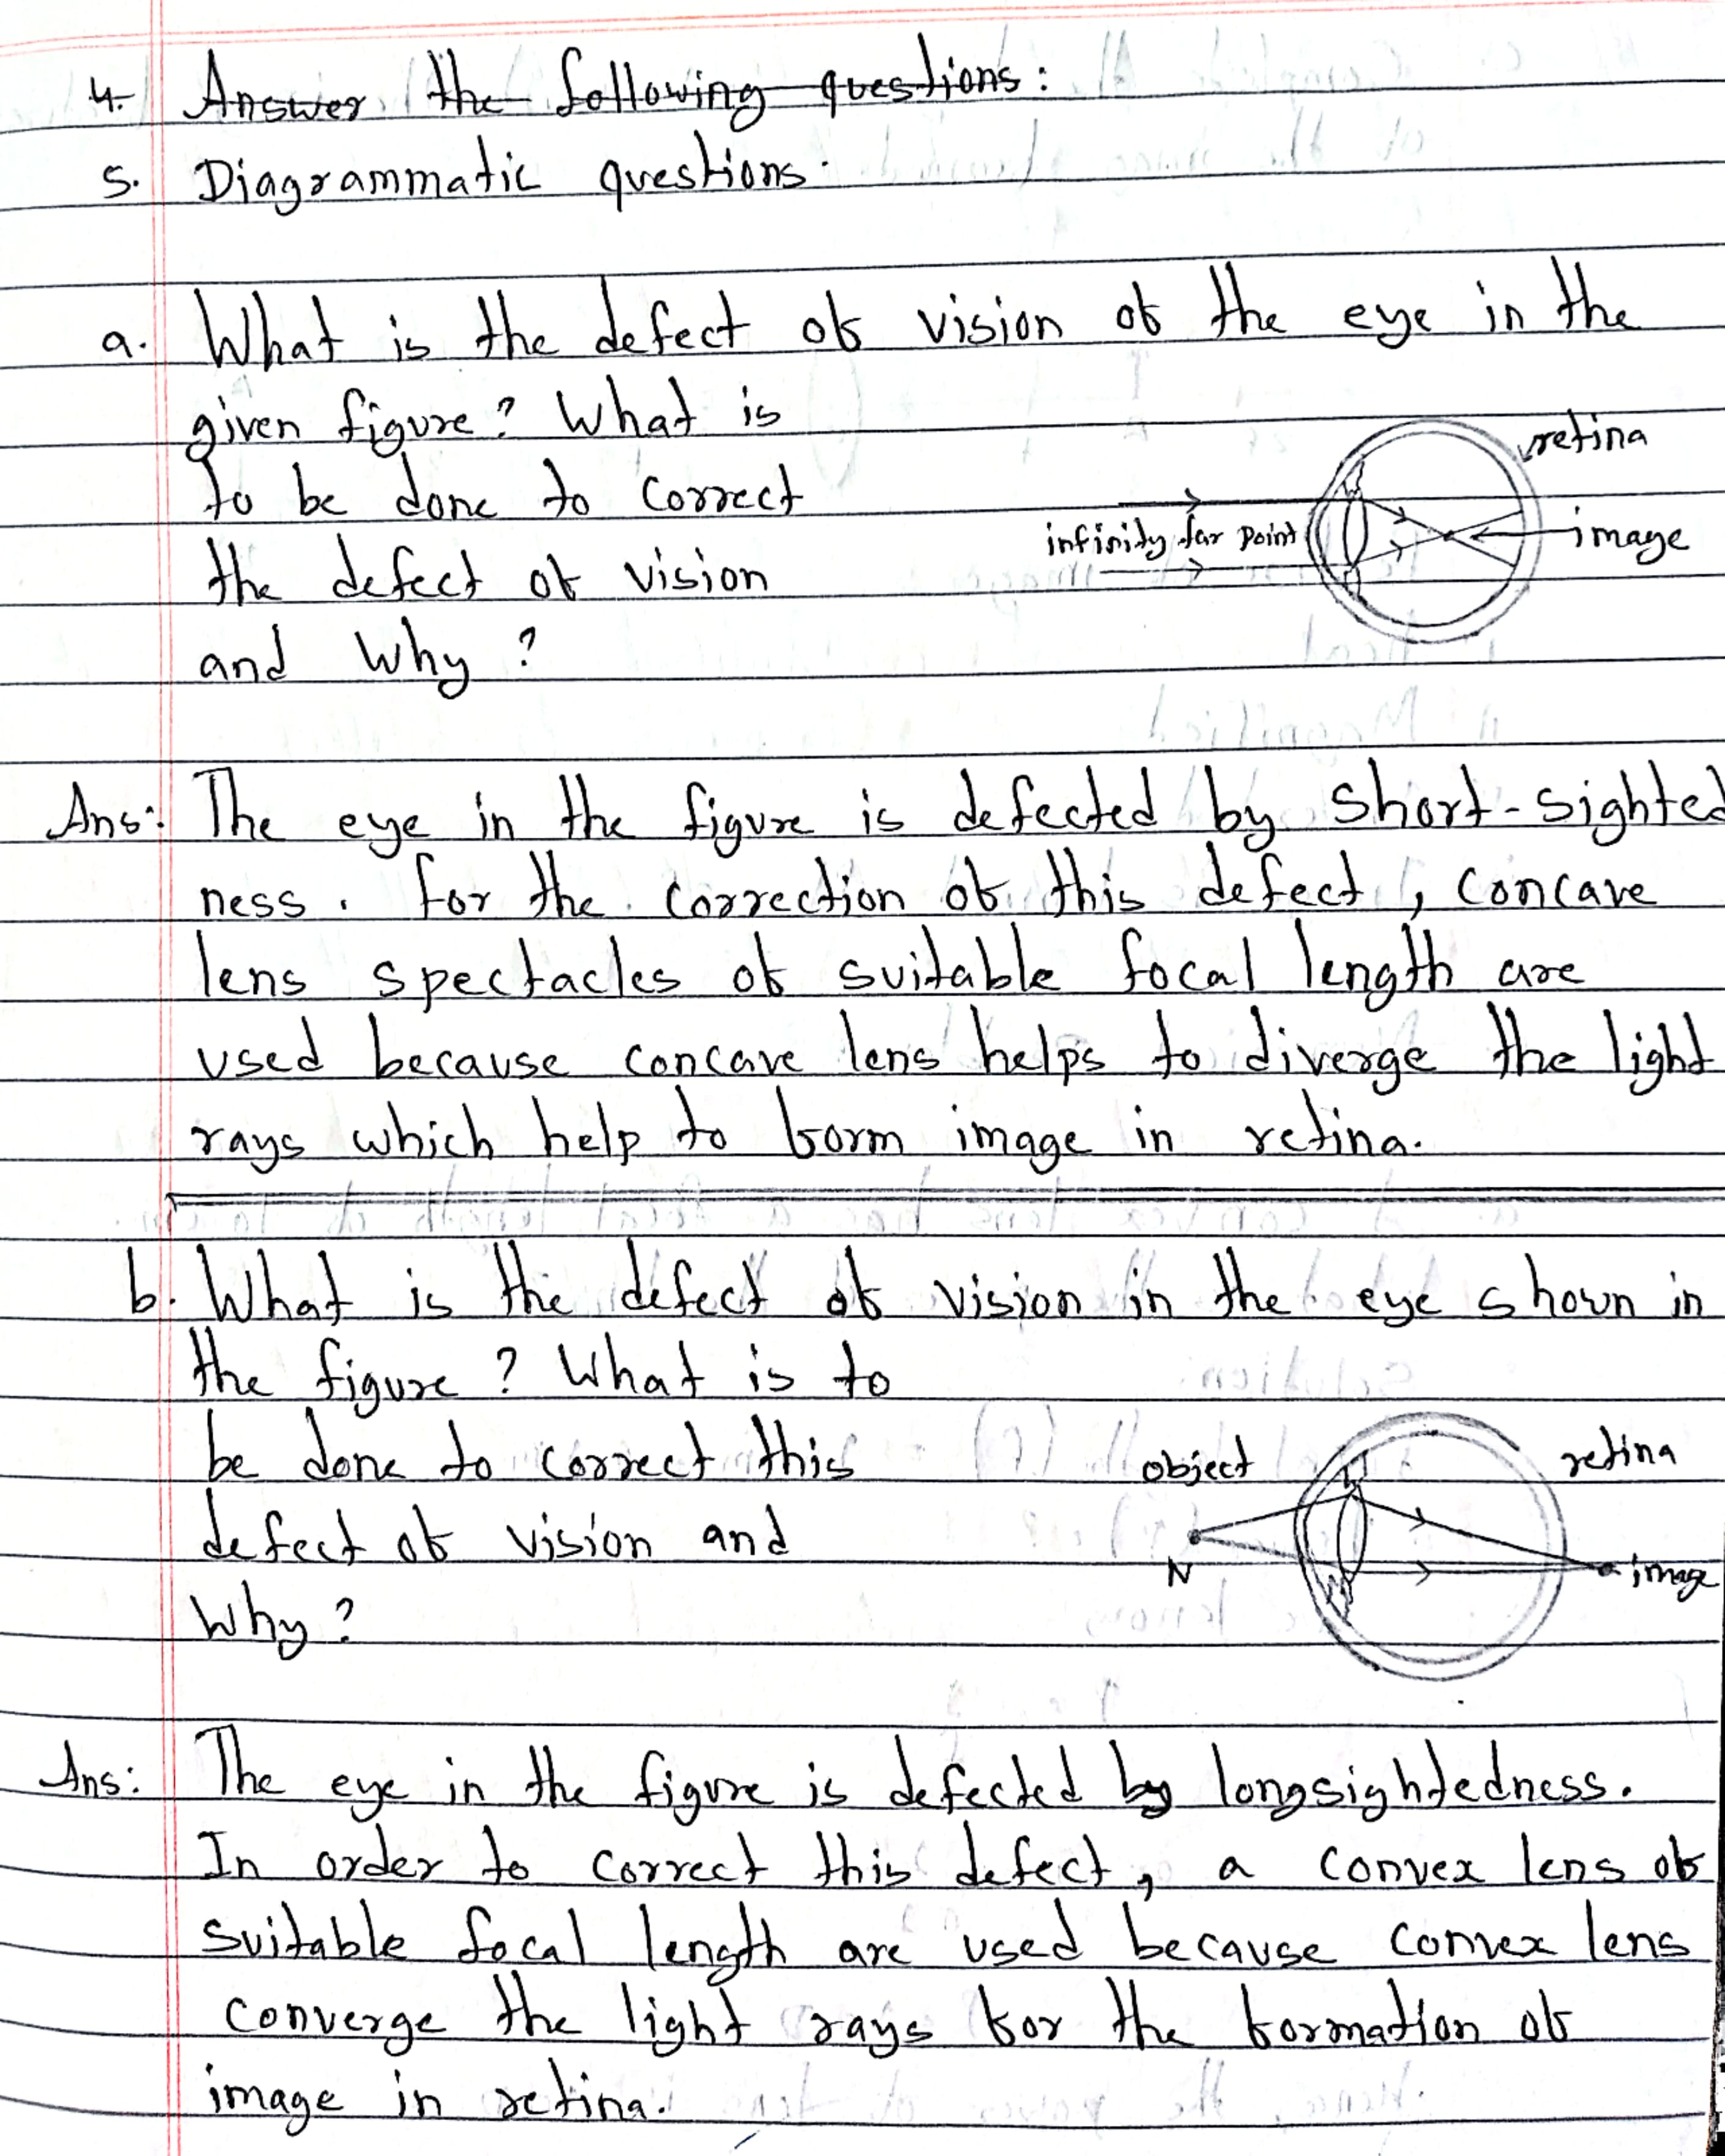 4. Answer the following questions:
5. Diagrammatic questions.
a. What is the defect of vision of the eye in the
given figure? What is
to be done to correct
the defect of vision
and Why?
retina
infinity far point
image
Ans: The eye in the figure is defected by short-sighted
ness. for the correction of this defect, concave
lens spectacles of suitable focal length are
used because concave lens helps to diverge the light
rays which help to form image in retina.
b. What is the defect of vision in the eye shown in
the figure? What is to
be done to correct this
defect of vision and
Why?
object
retina
N
image
Ans: The eye in the figure is defected by longsightedness.
In order to correct this defect, a convex lens of
suitable focal length are used because convex lens
converge the light rays for the formation of
image in retina.